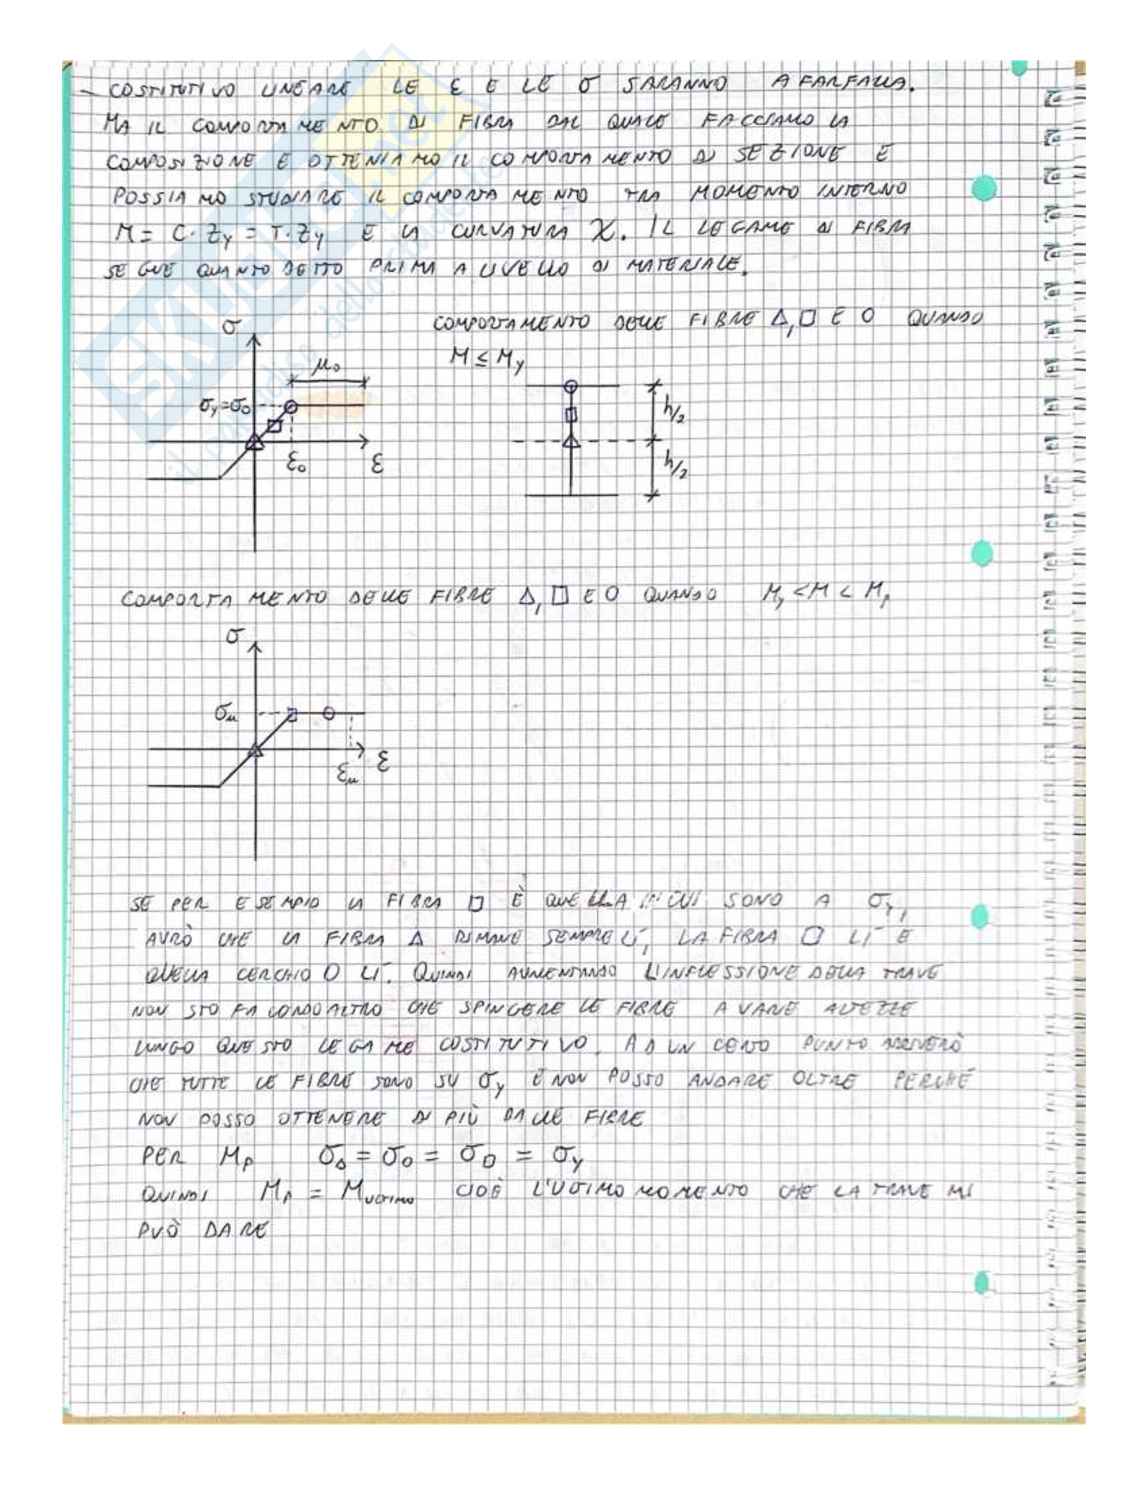 - COSTITUTIVO LINEARE LE ε E LE σ SARANNO A FARFALLA.
MA IL COMPORTAMENTO DI FIBRA DAL QUALE FACCIAMO LA
COMPOSIZIONE E OTTENIAMO IL COMPORTAMENTO DI SEZIONE E
POSSIAMO STUDIARE IL COMPORTAMENTO TRA MOMENTO INTERNO
M = C·Zy = T·Zy E LA CURVATURA χ. IL LEGAME DI FIBRA
SEGUE QUANTO DETTO PRIMA A LIVELLO DI MATERIALE.
COMPORTAMENTO DELLE FIBRE △, □ E O QUANDO
M ≤ My
σ
μ₀
σy=σ₀
ε₀
ε
h/2
h/2
COMPORTAMENTO DELLE FIBRE △, □ E O QUANDO My < M < Mp
σ
σu
εu
ε
SE PER ESEMPIO LA FIBRA □ È QUELLA IN CUI SONO A σy,
AVRÒ CHE LA FIBRA △ RIMANE SEMPRE LÌ, LA FIBRA □ LÌ E
QUELLA CERCHIO O LÌ. QUINDI AUMENTANDO L'INFLESSIONE DELLA TRAVE
NON STO FACENDO ALTRO CHE SPINGERE LE FIBRE A VARIE ALTEZZE
LUNGO QUESTO LEGAME COSTITUTIVO. AD UN CERTO PUNTO ARRIVERÒ
CHE TUTTE LE FIBRE SONO SU σy E NON POSSO ANDARE OLTRE PERCHÉ
NON POSSO OTTENERE DI PIÙ DALLE FIBRE
PER Mp σ△ = σO = σ□ = σy
QUINDI Mp = MULTIMO CIOÈ L'ULTIMO MOMENTO CHE LA TRAVE MI
PUÒ DARE